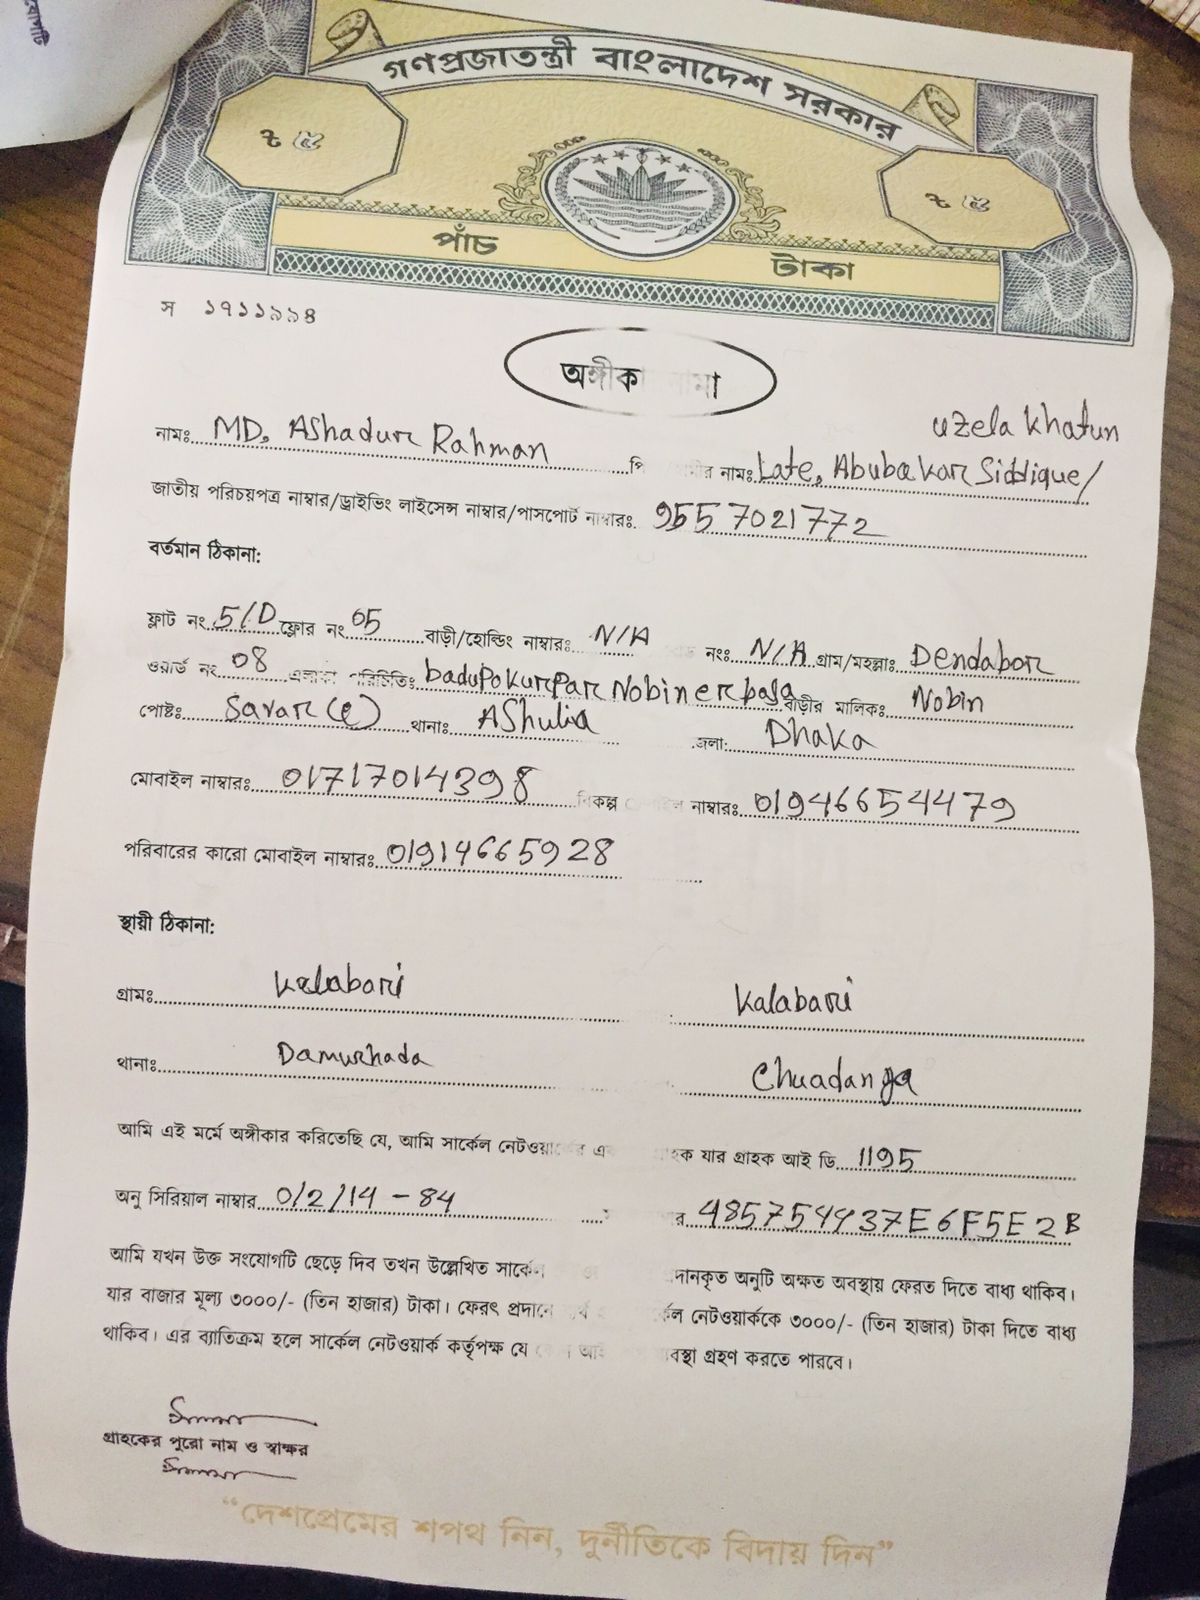 গণপ্রজাতন্ত্রী বাংলাদেশ সরকার
৳ ৫ ৳ ৫
পাঁচ টাকা
স ১৭১১৯৯৪
নামঃ MD. Ashadur Rahman নামঃ Late, Abubakar Siddique/ uzela khatun
জাতীয় পরিচয়পত্র নাম্বার/ড্রাইভিং লাইসেন্স নাম্বার/পাসপোর্ট নাম্বারঃ 9557021772
বর্তমান ঠিকানা:
ফ্লাট নং 5/D ফ্লোর নং 05 বাড়ী/হোল্ডিং নাম্বারঃ N/A নংঃ N/A গ্রাম/মহল্লাঃ Dendabor
ওয়ার্ড নং 08 এলাকা পরিচিতিঃ badupokurpar Nobiner basa বাড়ীর মালিকঃ Nobin
পোষ্টঃ Savar থানাঃ AShulia জলা: Dhaka
মোবাইল নাম্বারঃ 01717014398 বিকল্প নাম্বারঃ 01946654479
পরিবারের কারো মোবাইল নাম্বারঃ 01914665928
স্থায়ী ঠিকানা:
গ্রামঃ Kalabari Kalabari
থানাঃ Damurhada Chuadanga
আমি এই মর্মে অঙ্গীকার করিতেছি যে, আমি সার্কেল যার গ্রাহক আই ডি 1195
অনু সিরিয়াল নাম্বার 0/2/14-84 485754437E6F5E2B
আমি যখন উক্ত সংযোগটি ছেড়ে দিব তখন উল্লেখিত অনুটি অক্ষত অবস্থায় ফেরত দিতে বাধ্য থাকিব।
যার বাজার মূল্য ৩০০০/- (তিন হাজার) টাকা। ফেরৎ নেটওয়ার্ককে ৩০০০/- (তিন হাজার) টাকা দিতে বাধ্য
থাকিব। এর ব্যাতিক্রম হলে সার্কেল নেটওয়ার্ক কর্তৃপক্ষ যে গ্রহণ করতে পারবে।
গ্রাহকের পুরো নাম ও স্বাক্ষর
“দেশপ্রেমের শপথ নিন, দুর্নীতিকে বিদায় দিন”